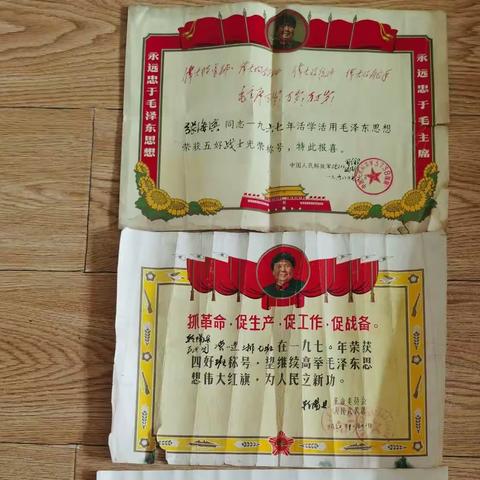 永远忠于毛泽东思想
伟大的导师 伟大的领袖 伟大的统帅 伟大的舵手
毛主席万岁！万岁！万万岁！
永远忠于毛主席
同志一九六七年活学活用毛泽东思想
荣获五好战士光荣称号，特此报喜。
中国人民解放军
抓革命·促生产·促工作·促战备。
营一连三排七班在一九七〇年荣获
四好班称号，望继续高举毛泽东思
想伟大红旗，为人民立新功。
革命委员会
人民武装部